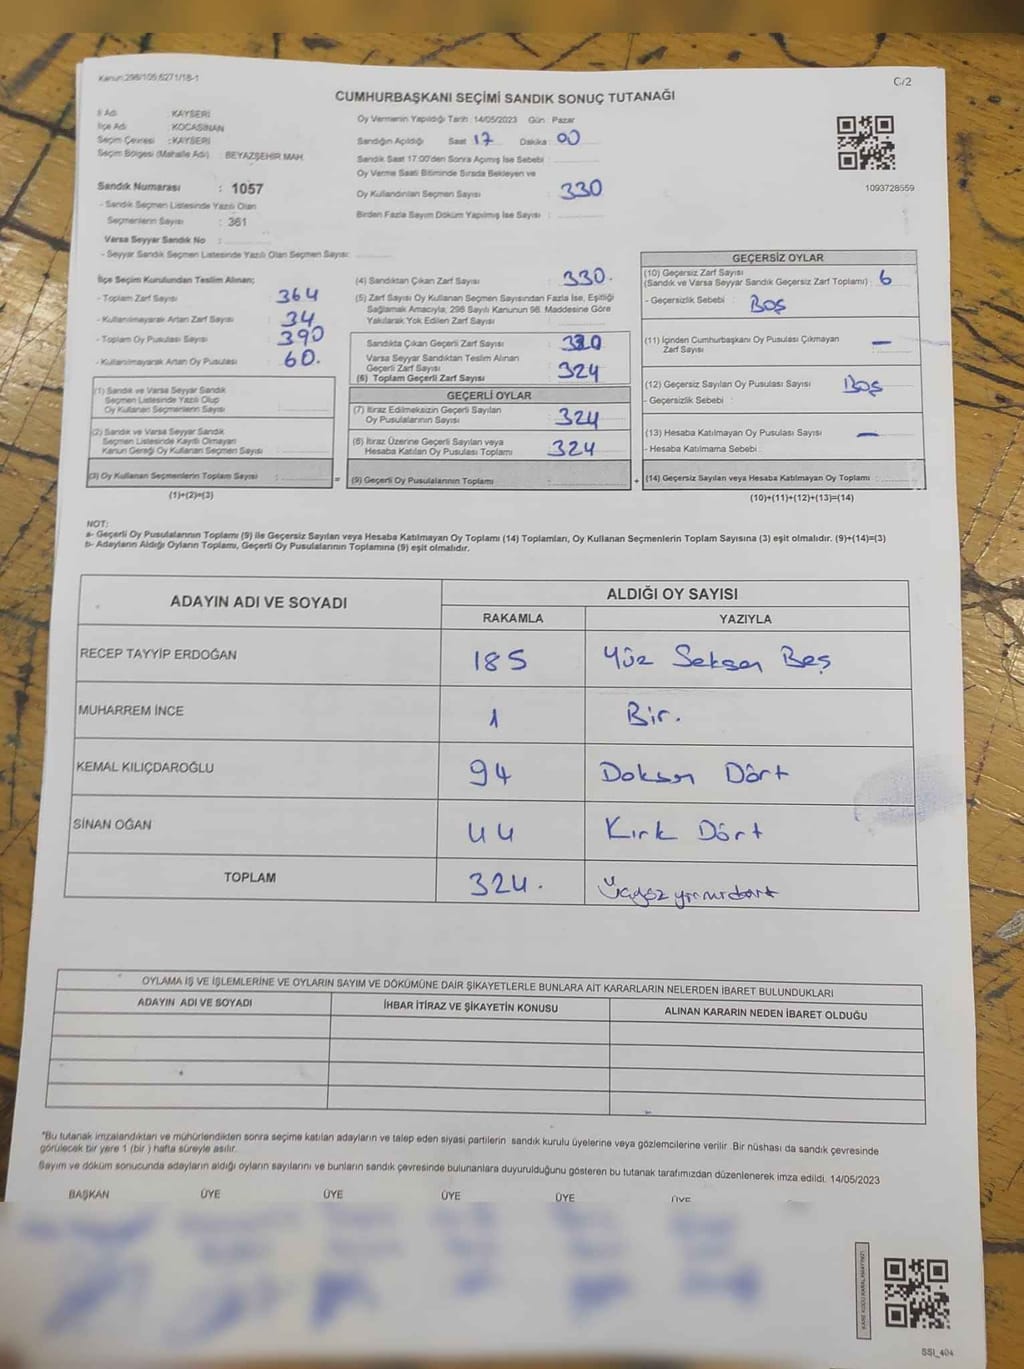 Kanun:298/105,6271/18-1
C/2
CUMHURBAŞKANI SEÇİMİ SANDIK SONUÇ TUTANAĞI
İl Adı : KAYSERİ
İlçe Adı : KOCASİNAN
Seçim Çevresi : KAYSERİ
Seçim Bölgesi (Mahalle Adı) : BEYAZŞEHİR MAH.
Sandık Numarası : 1057
- Sandık Seçmen Listesinde Yazılı Olan
Seçmenlerin Sayısı : 361
Varsa Seyyar Sandık No :
- Seyyar Sandık Seçmen Listesinde Yazılı Olan Seçmen Sayısı:
Oy Vermenin Yapıldığı Tarih : 14/05/2023 Gün : Pazar
Sandığın Açıldığı Saat 17 Dakika : 00
Sandık Saat 17:00'den Sonra Açılmış İse Sebebi :
Oy Verme Saati Bitiminde Sırada Bekleyen ve
Oy Kullandırılan Seçmen Sayısı 330
Birden Fazla Sayım Döküm Yapılmış İse Sayısı :
1093728559
İlçe Seçim Kurulundan Teslim Alınan;
- Toplam Zarf Sayısı : 364
- Kullanılmayarak Artan Zarf Sayısı : 34
- Toplam Oy Pusulası Sayısı : 390
- Kullanılmayarak Artan Oy Pusulası : 60.
(1) Sandık ve Varsa Seyyar Sandık
Seçmen Listesinde Yazılı Olup
Oy Kullanan Seçmenlerin Sayısı :
(2) Sandık ve Varsa Seyyar Sandık
Seçmen Listesinde Kayıtlı Olmayan
Kanun Gereği Oy Kullanan Seçmen Sayısı :
(3) Oy Kullanan Seçmenlerin Toplam Sayısı :
(1)+(2)=(3)
(4) Sandıktan Çıkan Zarf Sayısı : 330.
(5) Zarf Sayısı Oy Kullanan Seçmen Sayısından Fazla İse, Eşitliği
Sağlamak Amacıyla, 298 Sayılı Kanunun 98. Maddesine Göre
Yakılarak Yok Edilen Zarf Sayısı :
Sandıkta Çıkan Geçerli Zarf Sayısı :
Varsa Seyyar Sandıktan Teslim Alınan
Geçerli Zarf Sayısı : 324
(6) Toplam Geçerli Zarf Sayısı
GEÇERLİ OYLAR
(7) İtiraz Edilmeksizin Geçerli Sayılan
Oy Pusulalarının Sayısı : 324
(8) İtiraz Üzerine Geçerli Sayılan veya
Hesaba Katılan Oy Pusulası Toplamı : 324
= (9) Geçerli Oy Pusulalarının Toplamı :
GEÇERSİZ OYLAR
(10) Geçersiz Zarf Sayısı
(Sandık ve Varsa Seyyar Sandık Geçersiz Zarf Toplamı) : 6
- Geçersizlik Sebebi : Boş
(11) İçinden Cumhurbaşkanı Oy Pusulası Çıkmayan
Zarf Sayısı : —
(12) Geçersiz Sayılan Oy Pusulası Sayısı : Boş
- Geçersizlik Sebebi :
(13) Hesaba Katılmayan Oy Pusulası Sayısı : —
- Hesaba Katılmama Sebebi :
+ (14) Geçersiz Sayılan veya Hesaba Katılmayan Oy Toplamı :
(10)+(11)+(12)+(13)=(14)
NOT:
a- Geçerli Oy Pusulalarının Toplamı (9) ile Geçersiz Sayılan veya Hesaba Katılmayan Oy Toplamı (14) Toplamları, Oy Kullanan Seçmenlerin Toplam Sayısına (3) eşit olmalıdır. (9)+(14)=(3)
b- Adayların Aldığı Oyların Toplamı, Geçerli Oy Pusulalarının Toplamına (9) eşit olmalıdır.
ADAYIN ADI VE SOYADI
ALDIĞI OY SAYISI
RAKAMLA YAZIYLA
RECEP TAYYİP ERDOĞAN 185 Yüz Seksen Beş
MUHARREM İNCE 1 Bir.
KEMAL KILIÇDAROĞLU 94 Doksan Dört
SİNAN OĞAN 44 Kırk Dört
TOPLAM 324. Üçyüz yirmidört
OYLAMA İŞ VE İŞLEMLERİNE VE OYLARIN SAYIM VE DÖKÜMÜNE DAİR ŞİKAYETLERLE BUNLARA AİT KARARLARIN NELERDEN İBARET BULUNDUKLARI
ADAYIN ADI VE SOYADI İHBAR İTİRAZ VE ŞİKAYETİN KONUSU ALINAN KARARIN NEDEN İBARET OLDUĞU
*Bu tutanak imzalandıktan ve mühürlendikten sonra seçime katılan adayların ve talep eden siyasi partilerin sandık kurulu üyelerine veya gözlemcilerine verilir. Bir nüshası da sandık çevresinde
görülecek bir yere 1 (bir ) hafta süreyle asılır.
Sayım ve döküm sonucunda adayların aldığı oyların sayılarını ve bunların sandık çevresinde bulunanlara duyurulduğunu gösteren bu tutanak tarafımızdan düzenlenerek imza edildi. 14/05/2023
BAŞKAN ÜYE ÜYE ÜYE ÜYE ÜYE
SSI_404